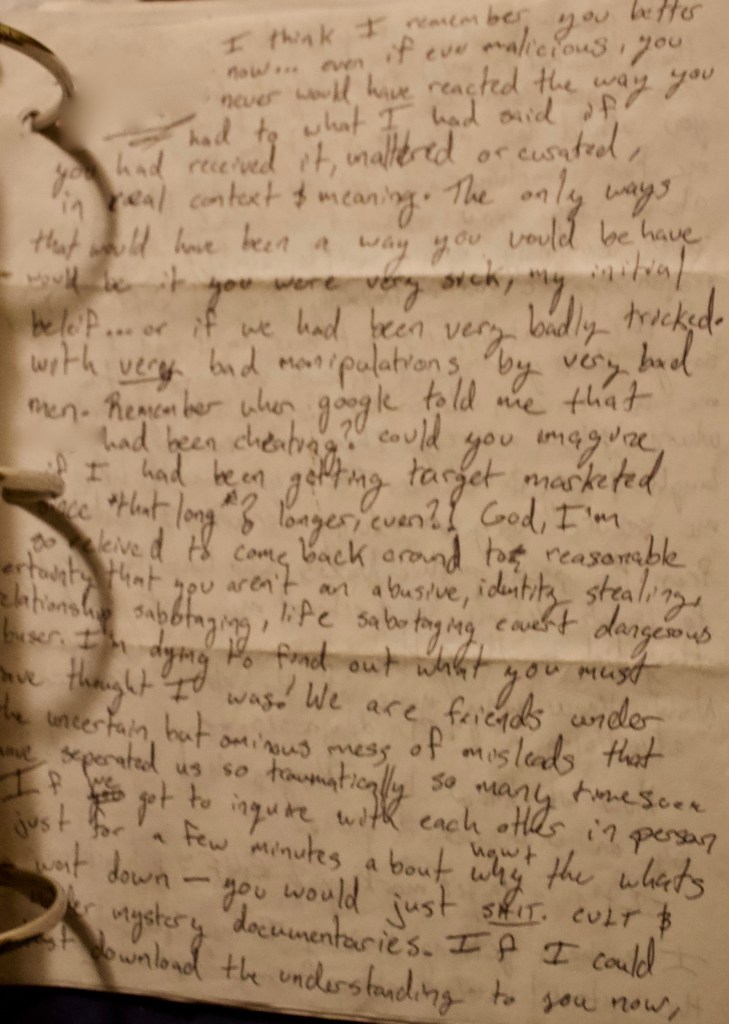 I think I remember you better
now... even if ever malicious, you
never would have reacted the way you
had to what I had said if
you had received it, unaltered or curated,
in real context & meaning. The only ways
that would have been a way you would behave
would be if you were very sick, my initial
beleif... or if we had been very badly tricked.
with very bad manipulations by very bad
men. Remember when google told me that
had been cheating? could you imagine
if I had been getting target marketed
*that long* & longer, even?! God, I'm
so releived to come back around to reasonable
that you aren't an abusive, identity stealing,
sabotaging, life sabotaging covert dangerous
I'm dying to find out what you must
thought I was! We are friends under
the uncertain, but ominous mess of misleads that
seperated us so traumatically so many times
If we got to inquire with each other in person
just for a few minutes about why the whats
went down — you would just SHIT. CULT &
mystery documentaries. If I could
download the understanding to you now,